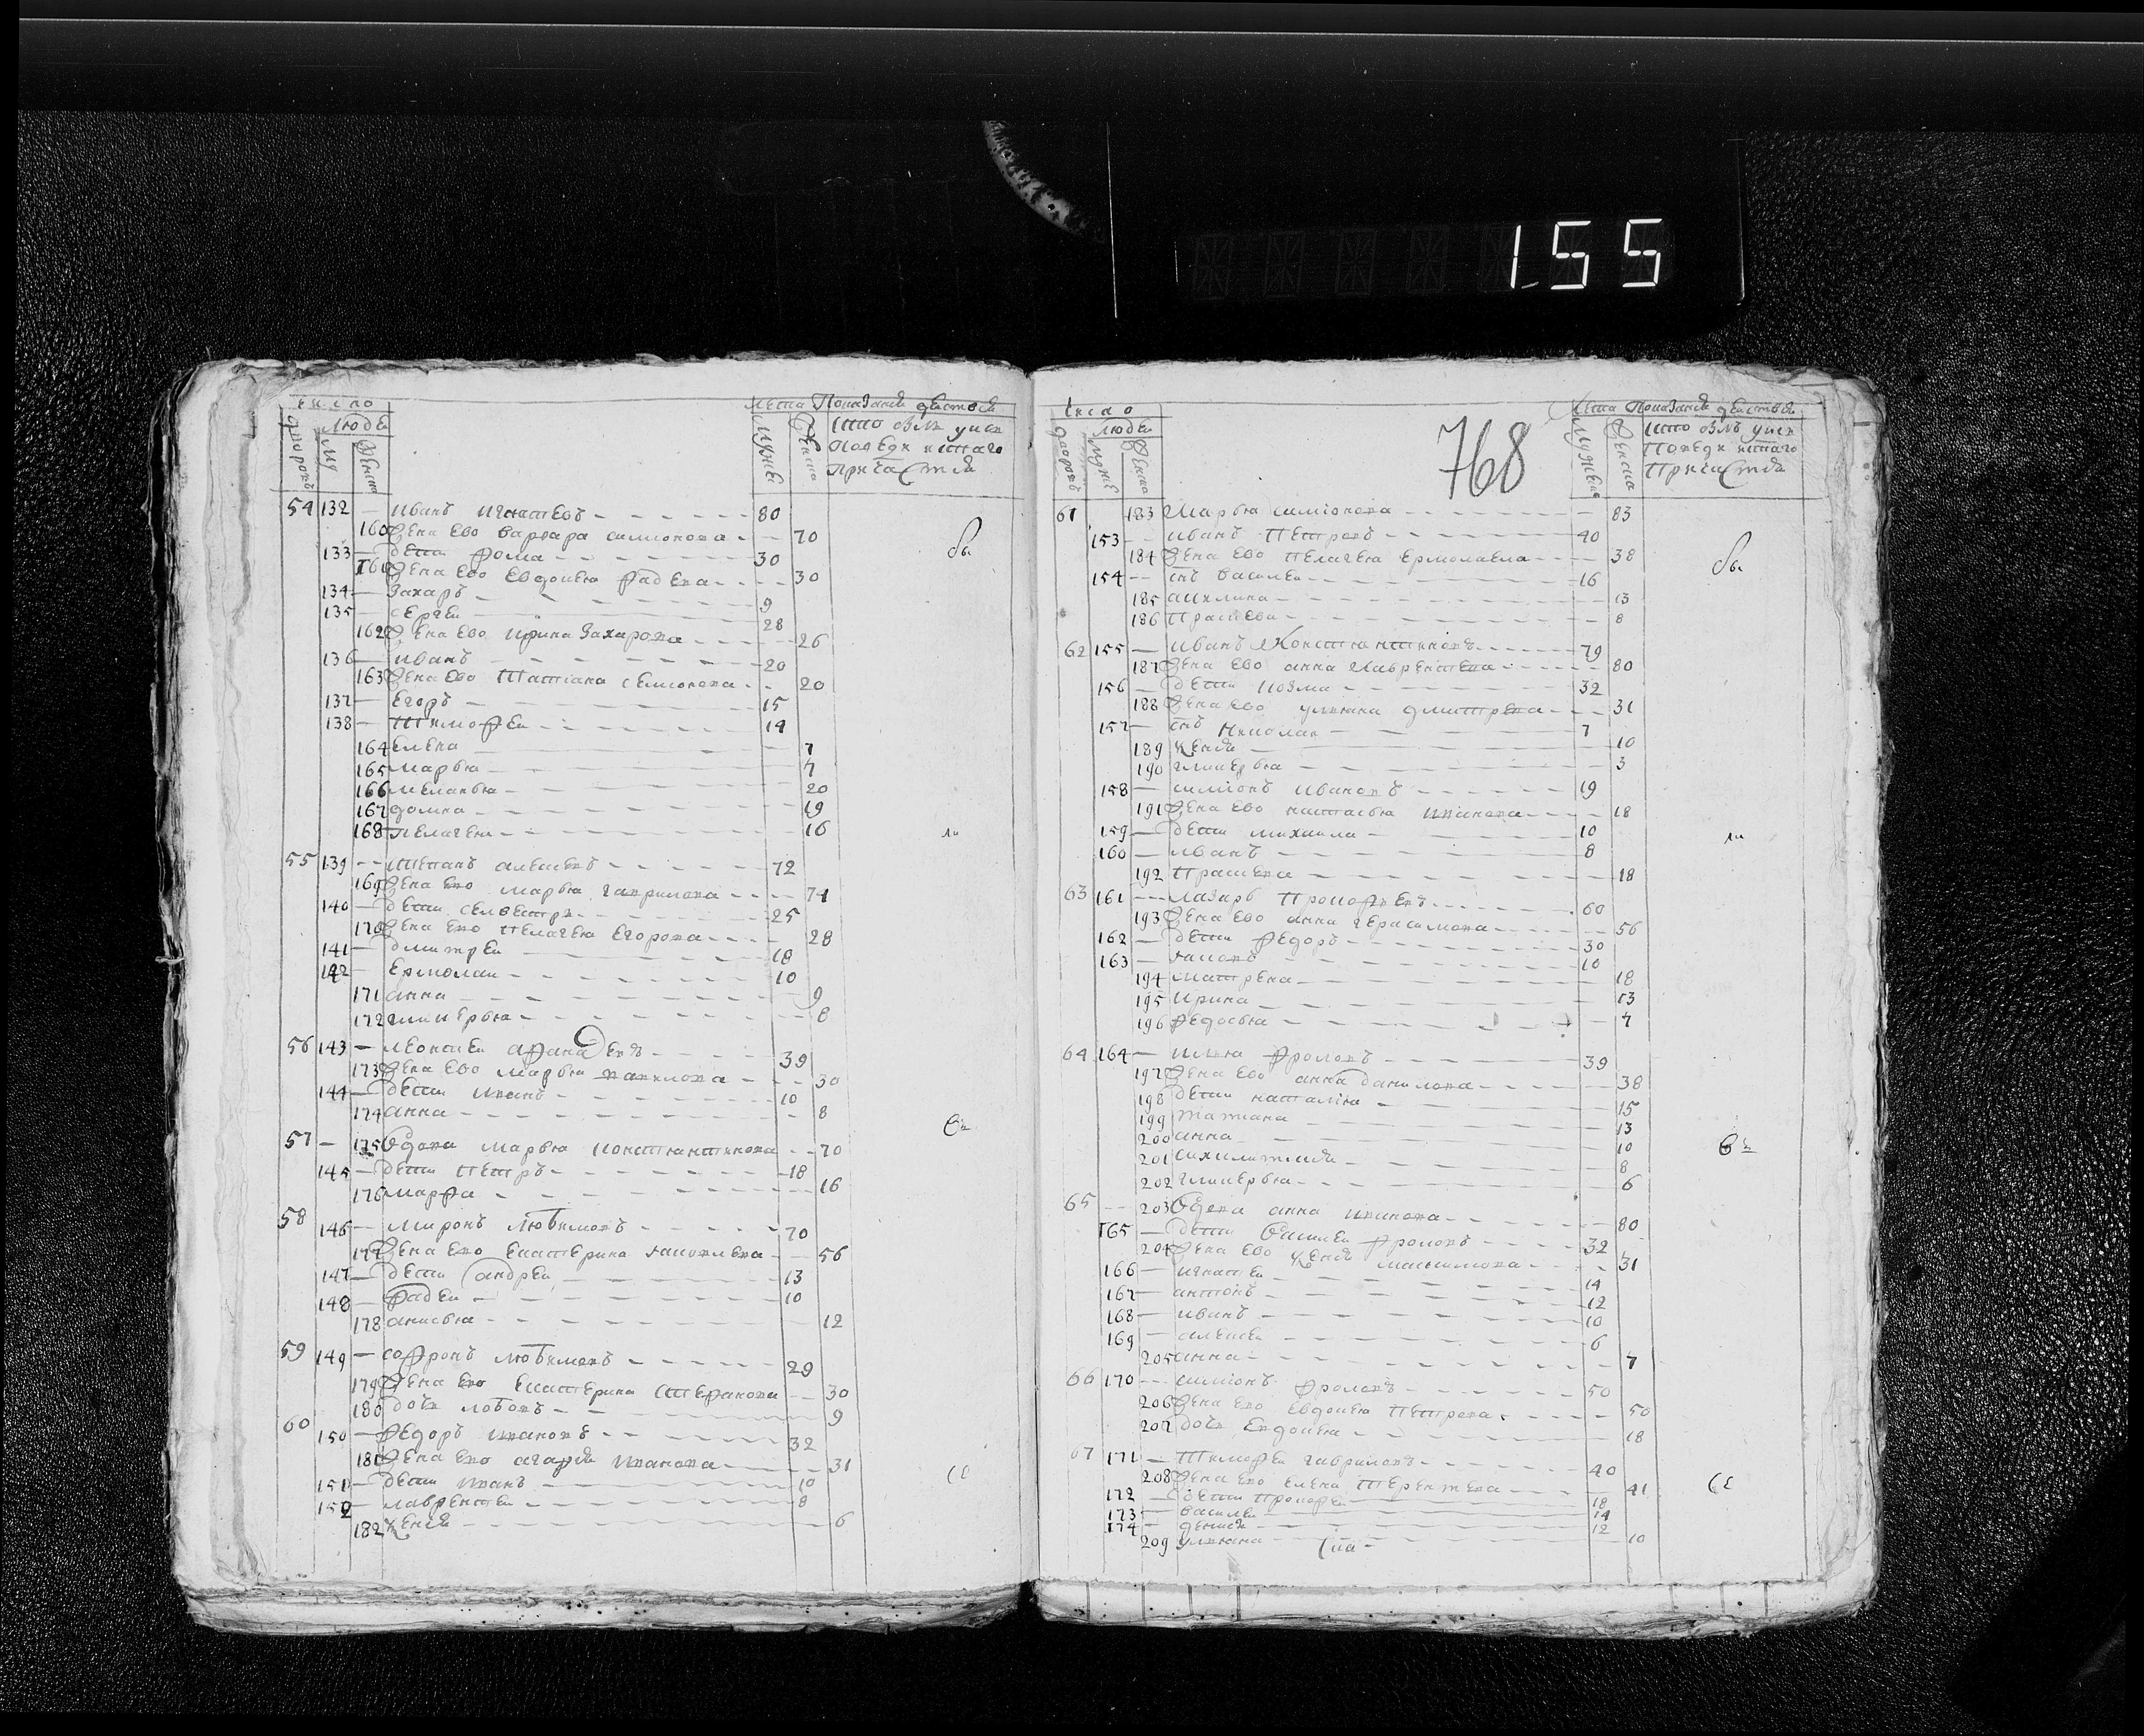 155
число
Лета
Показание действа
людеи
дворовъ
му
женъ
мужес
женска
кто озлъ уисп
поведи истнаго
причастия
54 132 — иванъ игнатевъ 80
160 жена ево варвара симионова 70
133 — дети фома 30
161 жена ево евдокея фадеева 30
134 — захаръ 9
135 — сергеи 28
162 жена ево ирина захарова 26
136 — иванъ 20
163 жена ево татиана семионова 20
137 — егоръ 15
138 — тимофеи 14
164 елена 7
165 марвя 7
166 меланья 20
167 домна 19
168 пелагея 16
55 139 — степанъ алексеевъ 72
169 жена ево марья гаврилова 74
140 — дети селвестръ 25
170 жена ево пелагея егорова 28
141 — дмитреи 18
142 — ермолаи 10
171 анна 9
172 гликерья 8
56 143 — леонтеи афанасевъ 39
173 жена ево марья павлова 30
144 — дети иванъ 10
174 анна 8
57 — 175 вдова марья константинова 70
145 — дети петръ 18
176 марфа 16
58 146 — миронъ любимовъ 70
177 жена ево екатерина яковлева 56
147 — дети андреи 13
148 — фадеи 10
178 анисья 12
59 149 — софронъ любимовъ 29
179 жена ево екатерина стефанова 30
180 дочь любовь 9
60 150 — федоръ ивановъ 32
181 жена ево агафия иванова 31
151 — дети иванъ 10
152 — лаврентеи 8
182 ксения 6
бы
ли
въ
се
число
Лета Показание действа
людеи
дворовъ
мужес
женска
768
мужеска
женска
кто озлъ уисп
поведи истнаго
причастия
61 183 марья симионова 83
153 — иванъ петровъ 40
184 жена ево пелагея ермолаева 38
154 — снъ василеи 16
185 акилина 13
186 прасковя 8
62 155 — иванъ константиновъ 79
187 жена ево анна лаврентева 80
156 — дети козма 32
188 жена ево улияна дмитрева 31
157 — снъ николаи 7
189 ксения 10
190 гликерья 3
158 — симионъ ивановъ 19
191 жена ево настасья иванова 18
159 — дети михаила 10
160 — иванъ 8
192 прасковя 18
63 161 — лазарь прокофьевъ 60
193 жена ево анна герасимова 56
162 — дети федоръ 30
163 — яковъ 10
194 матрена 18
195 ирина 13
196 федосья 7
64 164 — илья фроловъ 39
197 жена ево анна данилова 38
198 дети наталия 15
199 татиана 13
200 анна 10
201 8
202 гликерья 6
65 — 203 вдова анна иванова 80
165 — дети василеи фроловъ 32
204 жена ево ксения максимова 31
166 — игнатеи 14
167 — антонъ 12
168 — иванъ 10
169 — алексеи 6
205 анна 7
66 170 — симионъ фроловъ 50
206 жена ево евдокея петрова 50
207 дочь евдокея 18
67 171 — тимофеи гавриловъ 40
208 жена ево елена терентева 41
172 — дети прокофеи 18
173 — василеи 14
174 — денисъ 12
209 улияна 10
бы
ли
въ
се